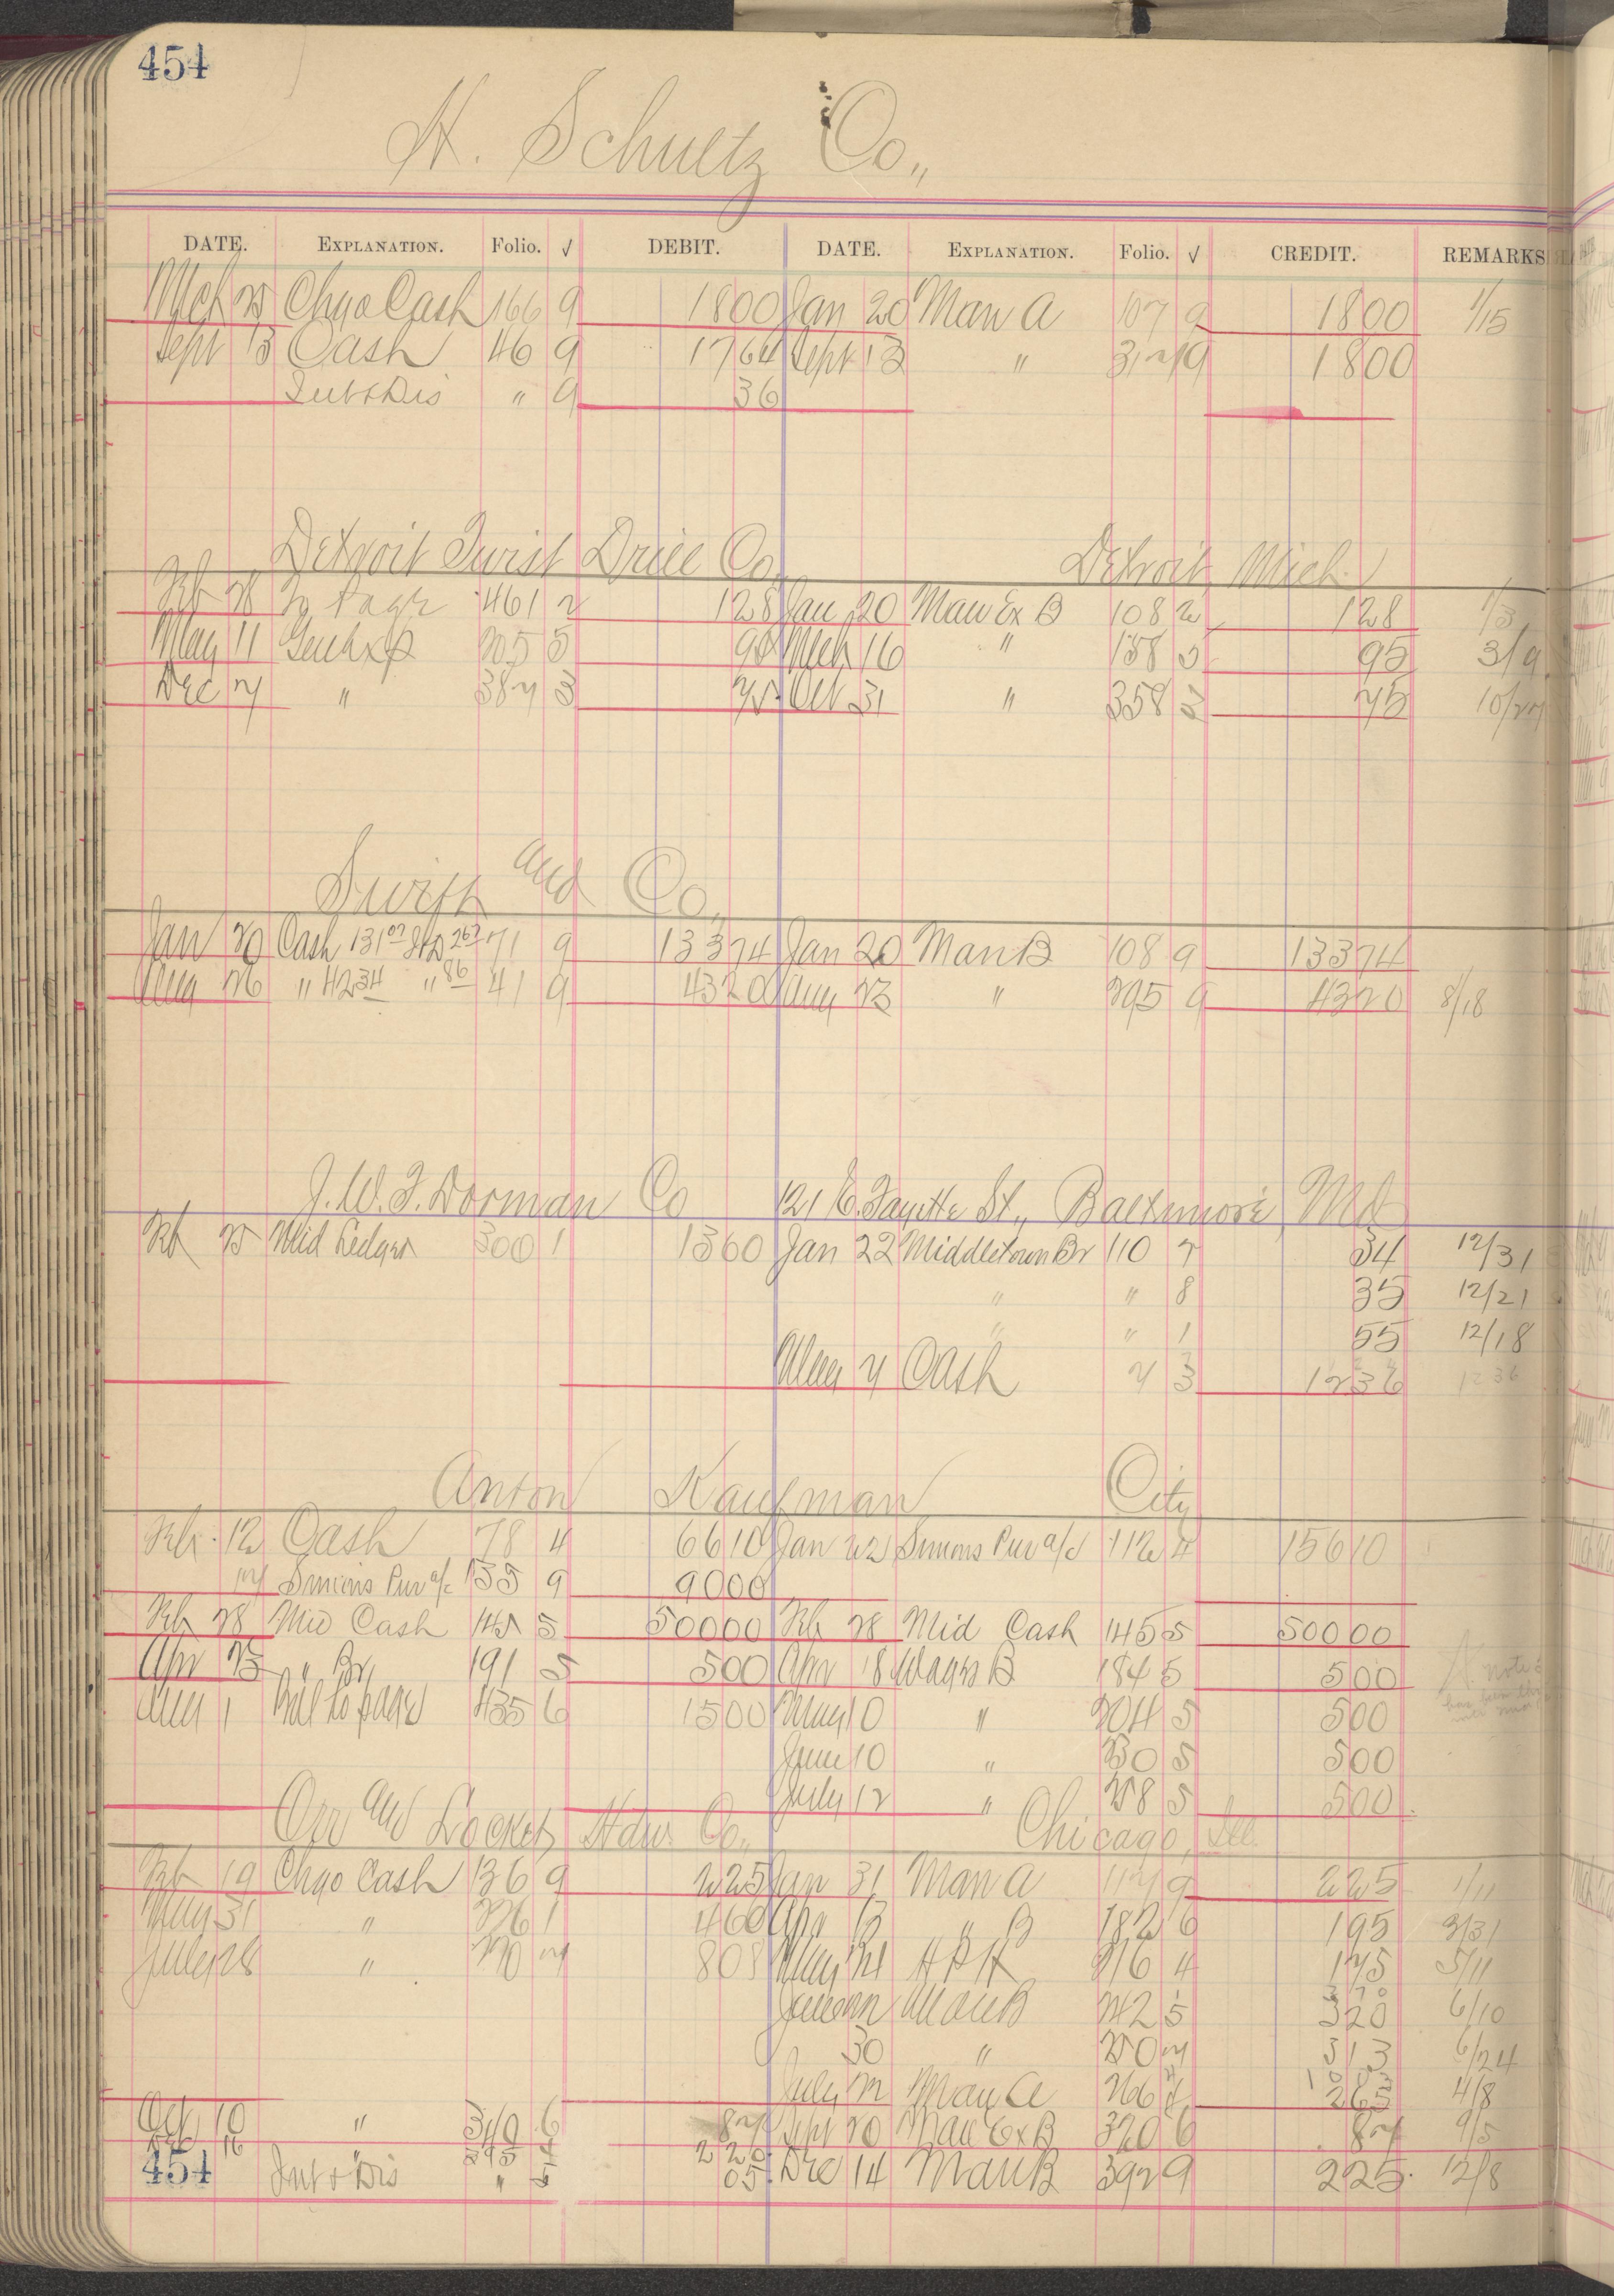 454
H. Schultz Co.,
DATE. EXPLANATION. Folio. √ DEBIT. DATE. EXPLANATION. Folio. √ CREDIT. REMARKS
Mch 25 Chgo Cash 166 9 1800 Jan 20 Man A 107 9 1800 1/15
Sept 13 Cash 46 9 1764 Sept 13 " 312 9 1800
Int & Dis " 9 36
Detroit Twist Drill Co. Detroit, Mich.
Feb 28 To Page 461 2 128 Jan 20 Man Ex B 108 2 128 1/3
May 11 205 5 95 Mch 16 " 158 5 95 3/9
Dec 7 " 387 3 75 Oct 31 " 358 3 75 10/27
Swift and Co.,
Jan 20 Cash 131 07 267 71 9 13374 Jan 20 Man B 108 9 13374
Aug 26 " 4234 " 86 41 9 4320 Aug 23 " 295 9 4320 8/18
J. W. F. Dorman Co 121 E. Fayette St., Baltimore Md
Feb 25 Mid Ledger 300 1 1360 Jan 22 Middletown Br 110 7 34 12/31
" " 8 35 12/21
" " 1 55 12/18
Aug 7 Cash 7 3 1236 1236
Anton Kaufman City
Feb. 12 Cash 78 4 6610 Jan 22 Simons Pur a/c 112 4 15610
17 Simons Pur a/c 155 9 9000
Feb 28 Mid Cash 145 5 50000 Feb 28 Mid Cash 145 5 50000
Apr 23 " Br 191 5 500 Apr 18 Wages B 184 5 500
Aug 1 Bal to page 435 6 1500 May 10 " 204 5 500
June 10 " 230 5 500
July 12 " 258 5 500
Orr and Locket Hdw. Co., Chicago, Ill.
Feb 19 Chgo Cash 136 9 225 Jan 31 Man A 117 9 225 1/11
May 31 " 226 1 460 Apr 13 " B 182 6 195 3/31
July 28 " 270 7 808 May 24 216 4 175 5/11
June Man B 242 5 320 6/10
30 " 250 7 313 6/24
July 22 Man A 266 265 4/8
Oct 10 " 340 6 87 Sept 20 Man Ex B 320 6 87 9/5
16 " 395 220
454 Int & Dis " 05 Dec 14 Man B 392 9 225 12/8